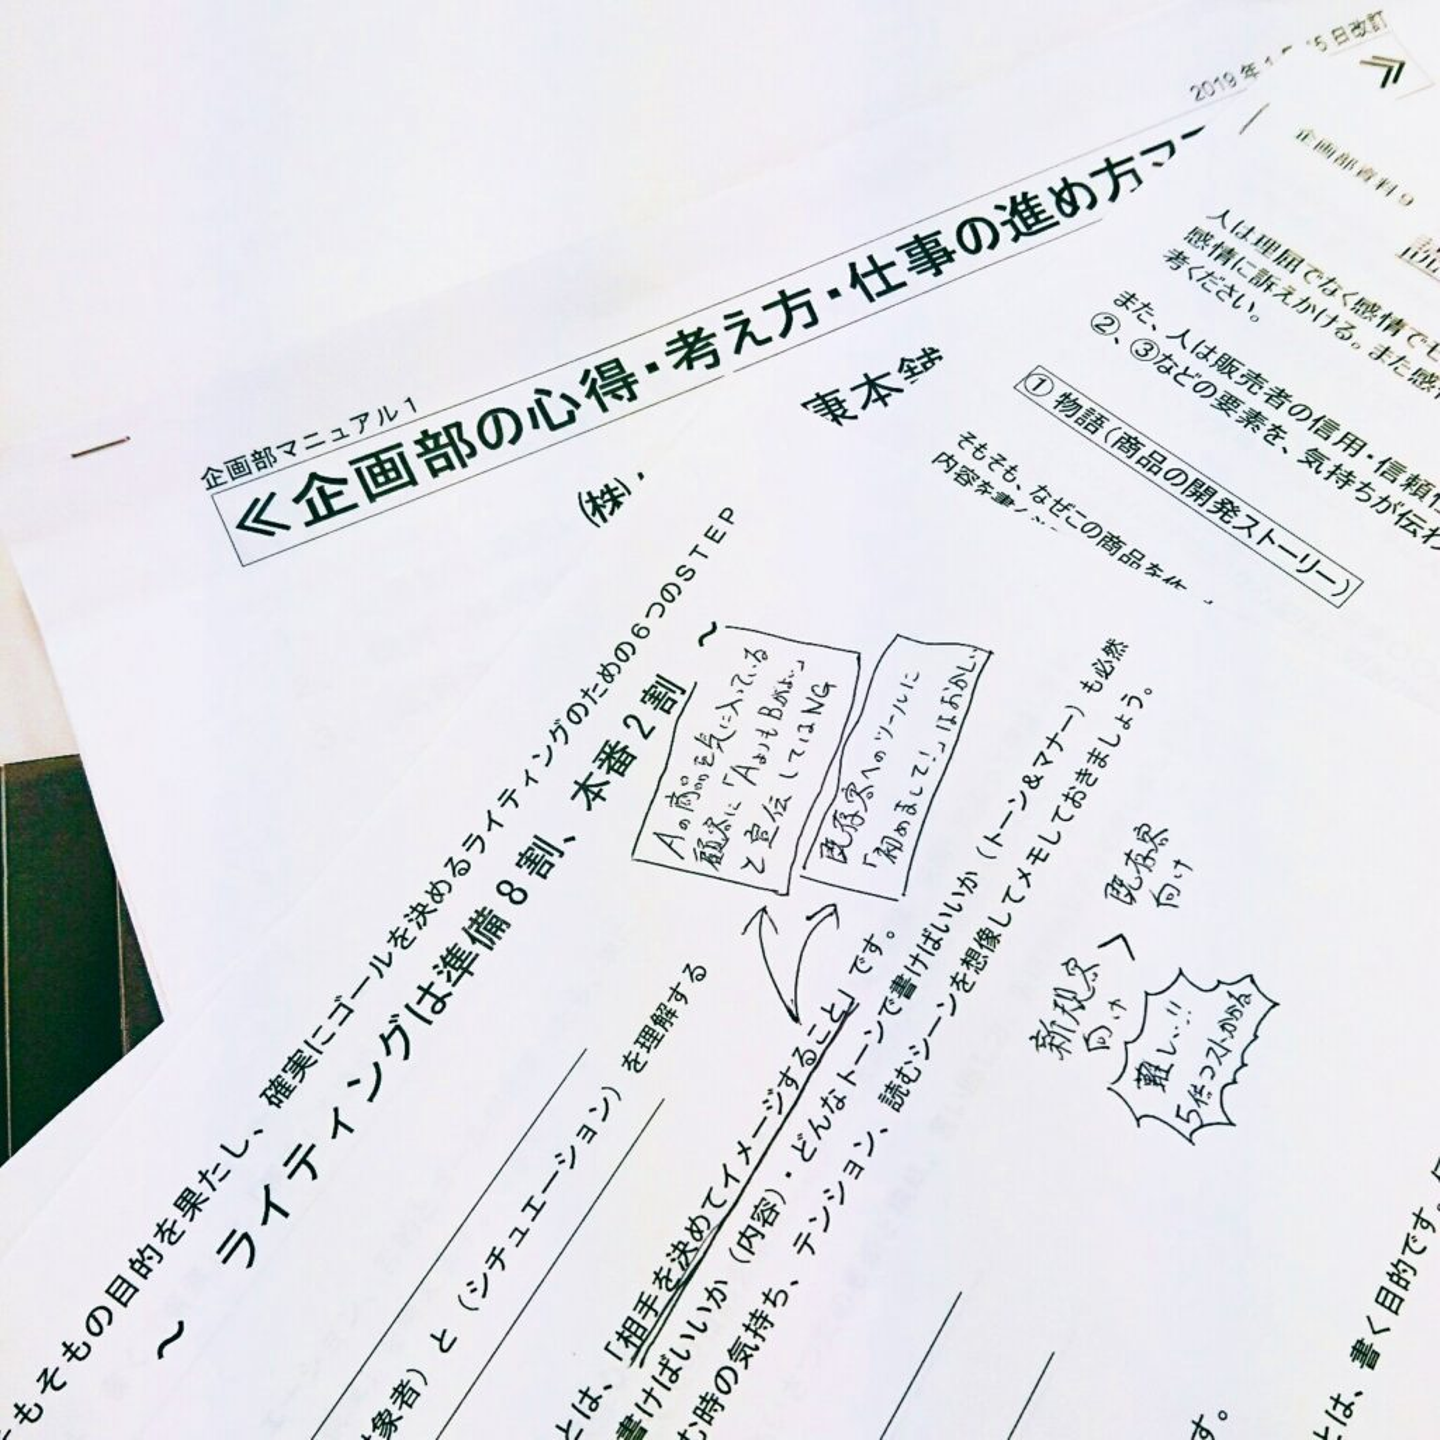 企画部マニュアル1
≪企画部の心得・考え方・仕事の進め方マ
≫
(株)
東本舗
2019年
5日改訂
企画部資料9
人は理屈でなく感情でモ
感情に訴えかける。また感情
考ください。
また、人は販売者の信用・信頼性
②、③などの要素を、気持ちが伝わ
①物語(商品の開発ストーリー)
そもそも、なぜこの商品を作
内容を書
もそもの目的を果たし、確実にゴールを決めるライティングのための6つのSTEP
~ライティングは準備8割、本番2割~
Aの商品を気に入っている
顧客に「AよりもBがよい」
と宣伝してはNG
既存客へのツールに
「初めまして!」はおかしい
対象者)と(シチュエーション)を理解する
とは、「相手を決めてイメージすること」です。
書けばいいか(内容)・どんなトーンで書けばいいか(トーン&マナー)も必然
む時の気持ち、テンション、読むシーンを想像してメモしておきましょう。
新規客
向け
>
既存客
向け
難しい!!
5倍コストかかる
とは、書く目的です。
す。